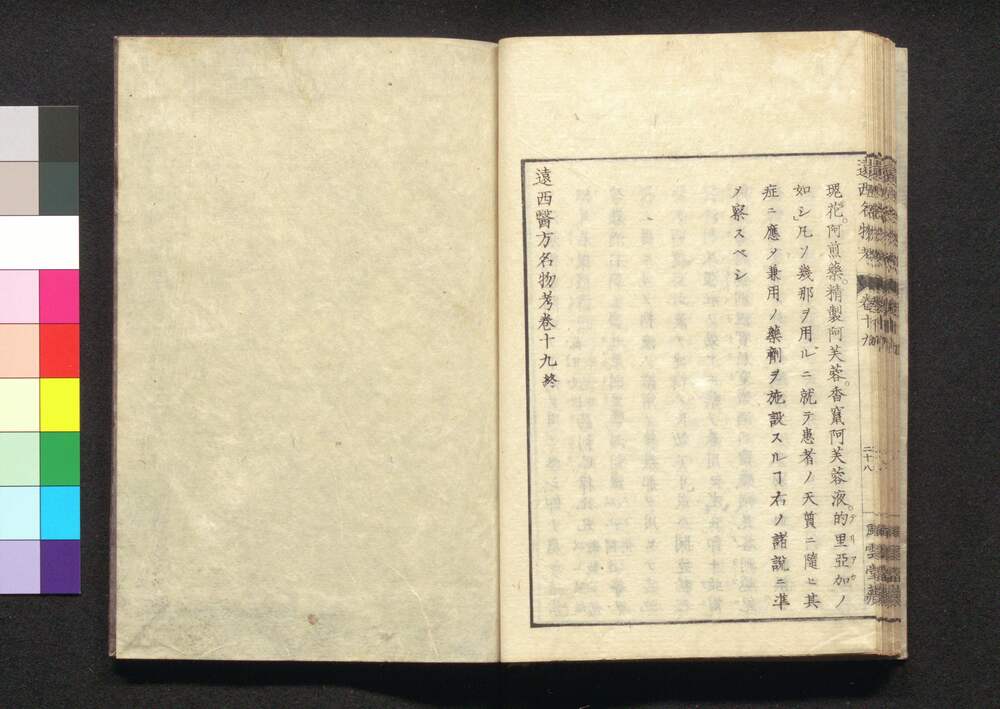 遠西名物考 卷十九 二十八
瑰花。阿煎藥。精製阿芙蓉。香竄阿芙蓉液。的里亞加ノ
如シ凡ソ幾那ヲ用ルニ就テ患者ノ天質ニ隨ヒ其
症ニ應メ兼用ノ藥劑ヲ施設スルヿ右ノ諸説ニ準
メ察スベシ
遠西醫方名物考卷十九終